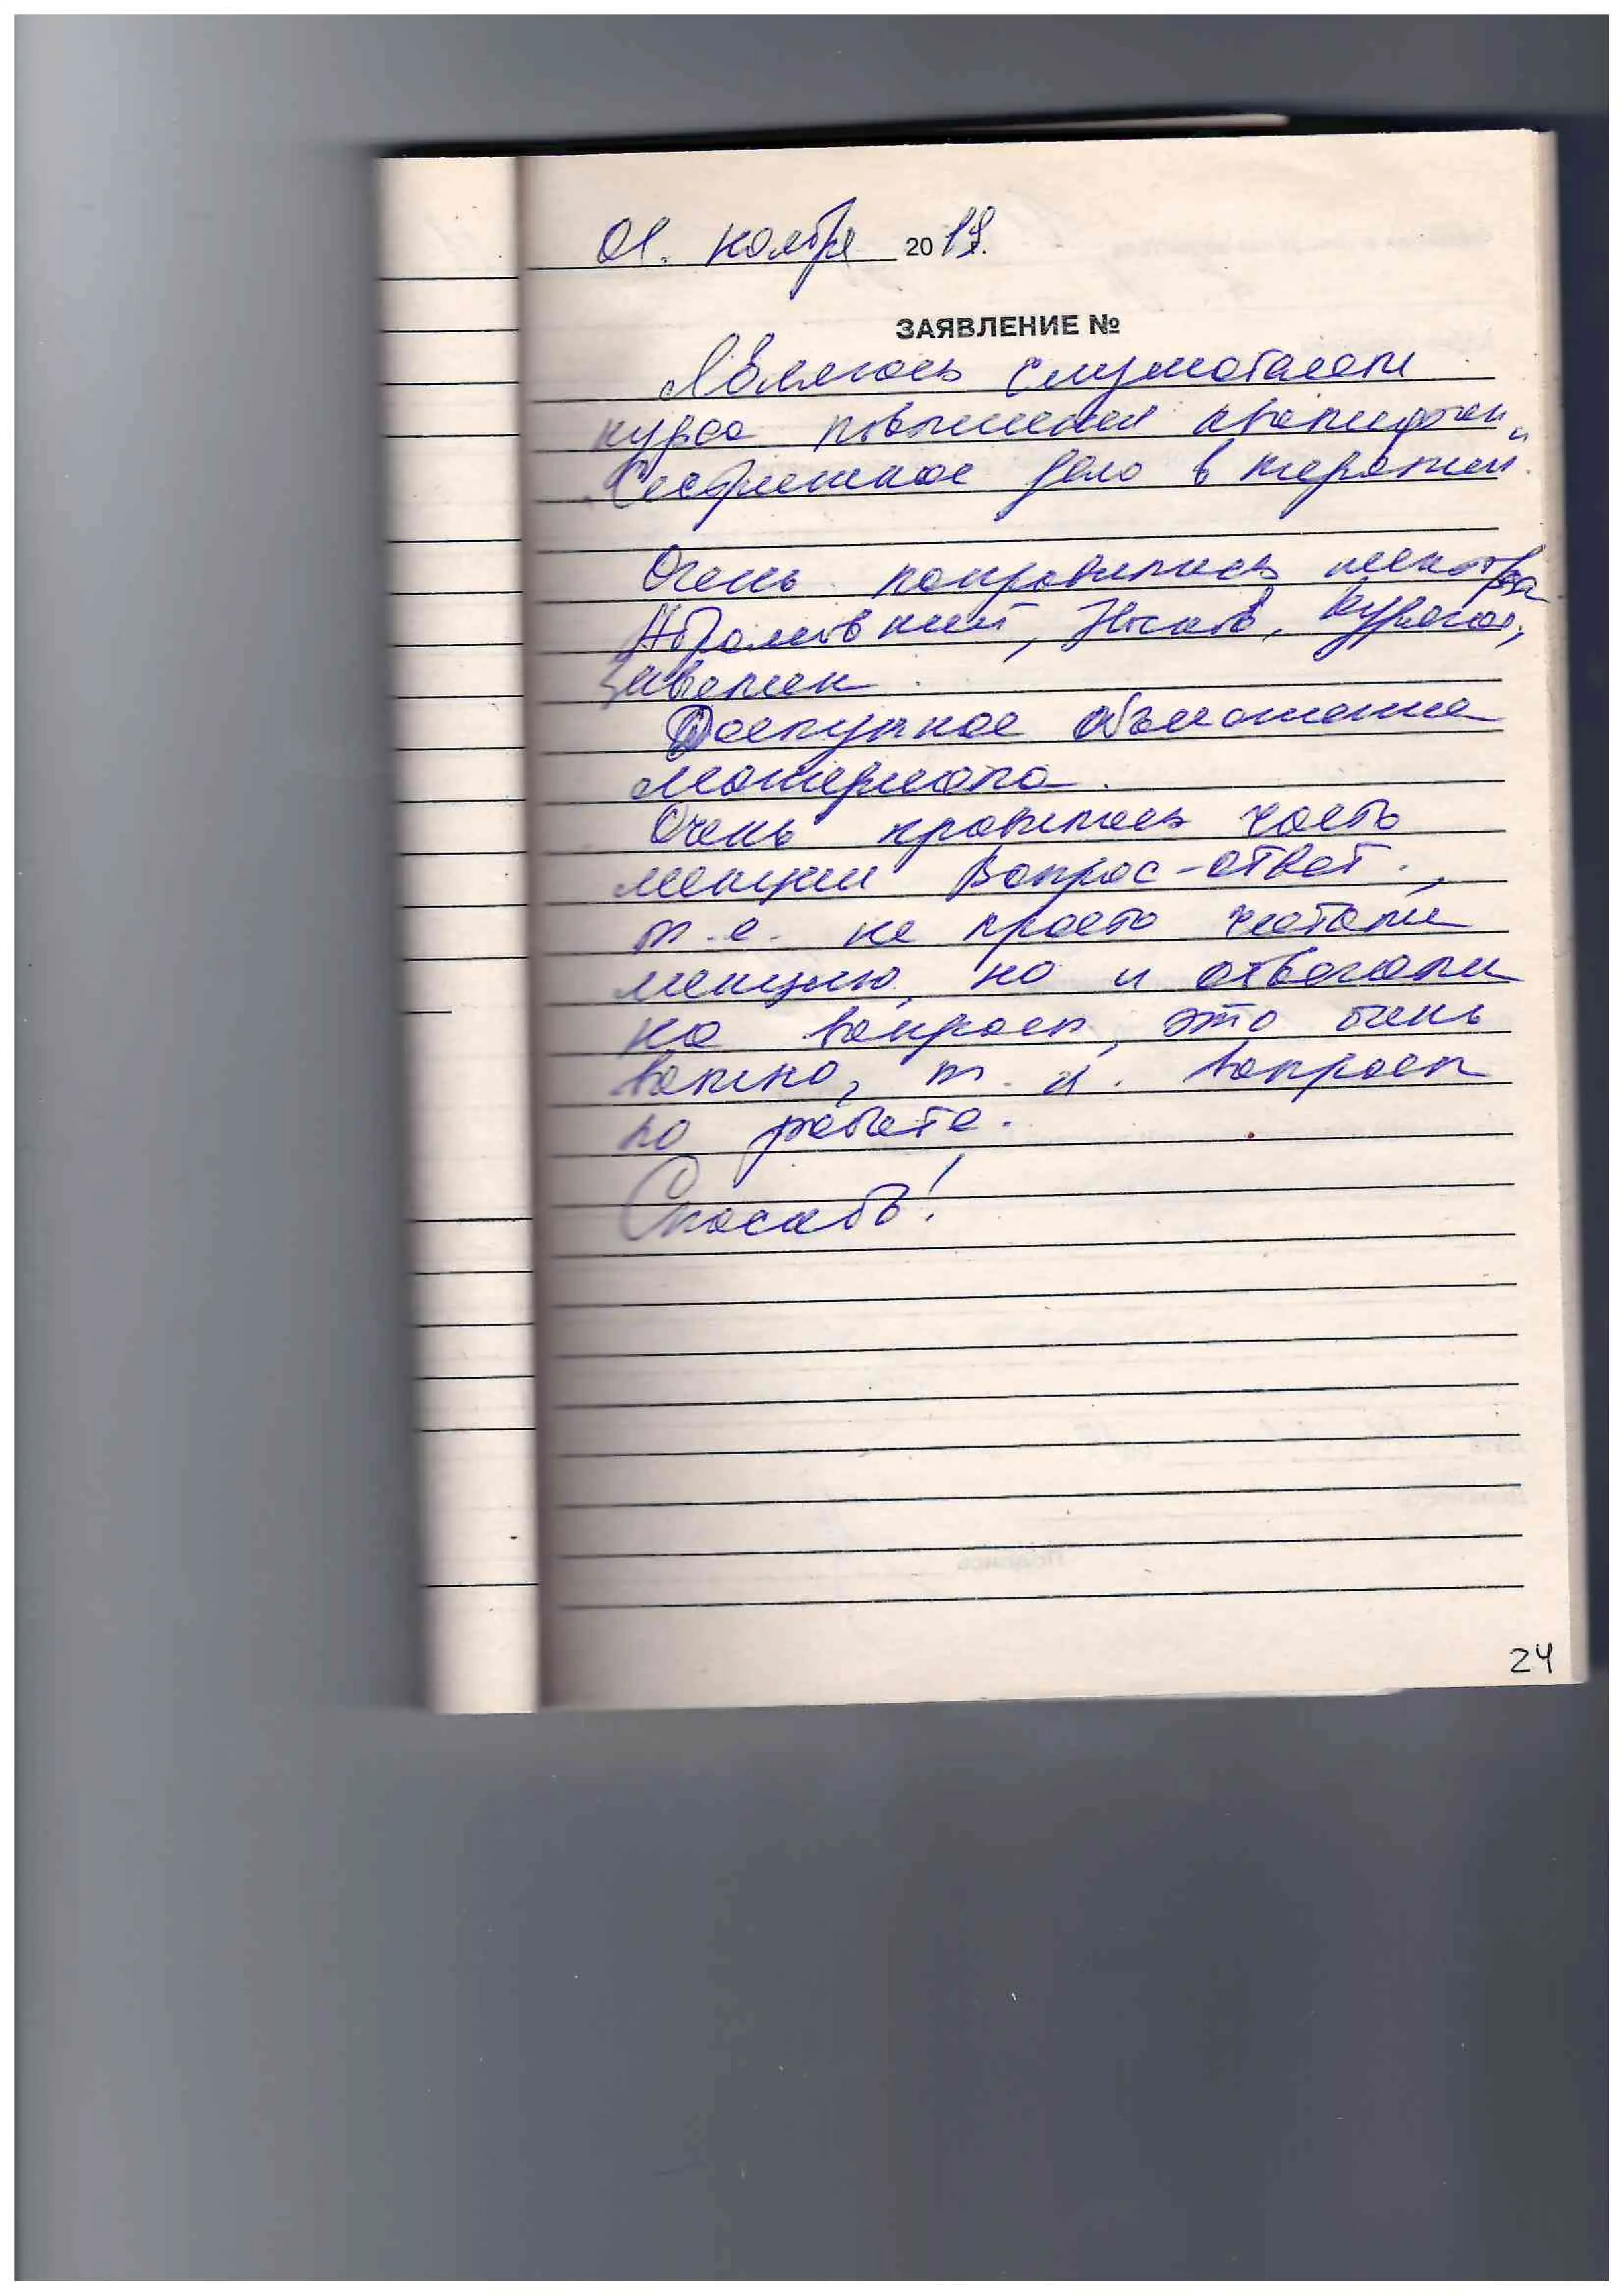 01. ноября 2019.
ЗАЯВЛЕНИЕ №
Являюсь слушателем
курса повышения квалификации
"Сестринское дело в терапии".
Очень понравились лектора
Абрамовский, Носиков,
Доступное объяснение
материала.
Очень нравилась часть
лекции вопрос-ответ.,
т.е. не просто читали
лекцию, но и отвечали
на вопросы, это очень
важно, т.к. вопросы
по работе.
Спасибо!
24